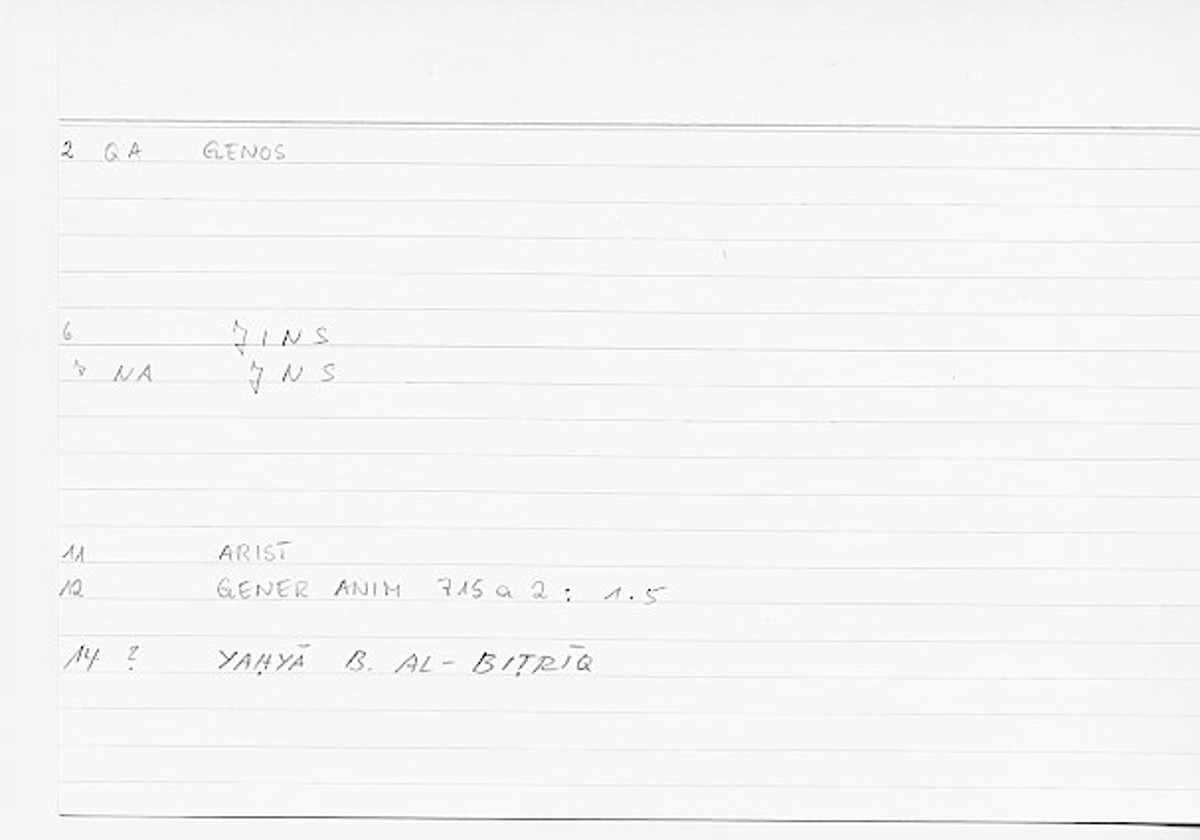 2 QA GENOS
6 JINS
7 NA JNS
11 ARIST
12 GENER ANIM 715 a 2 : 1.5
14 ? YAḤYĀ B. AL-BIṬRĪQ